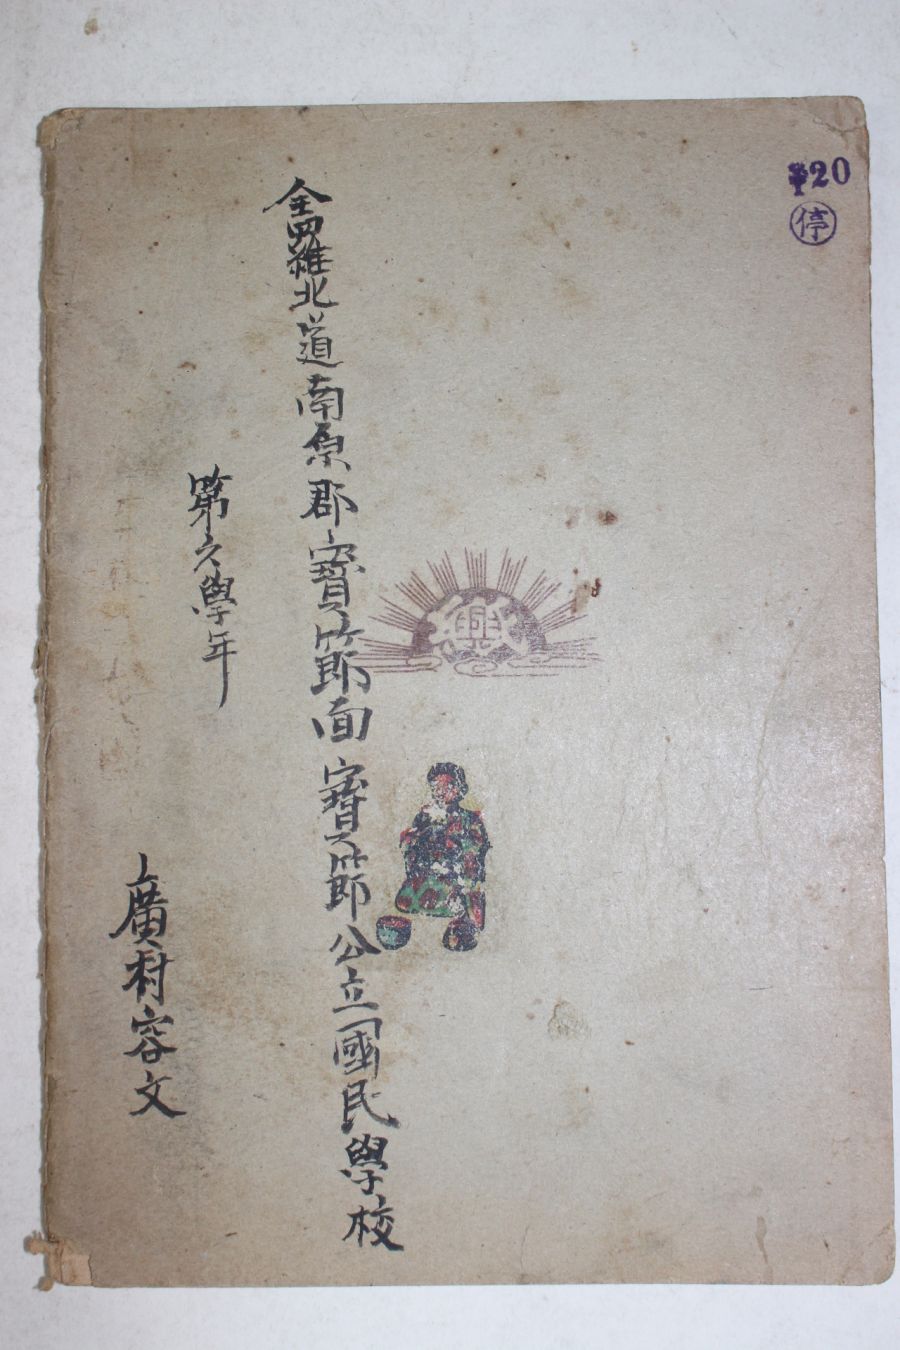 ¥20
停
全羅北道南原郡寶節面寶節公立國民學校
第六學年
廣村容文